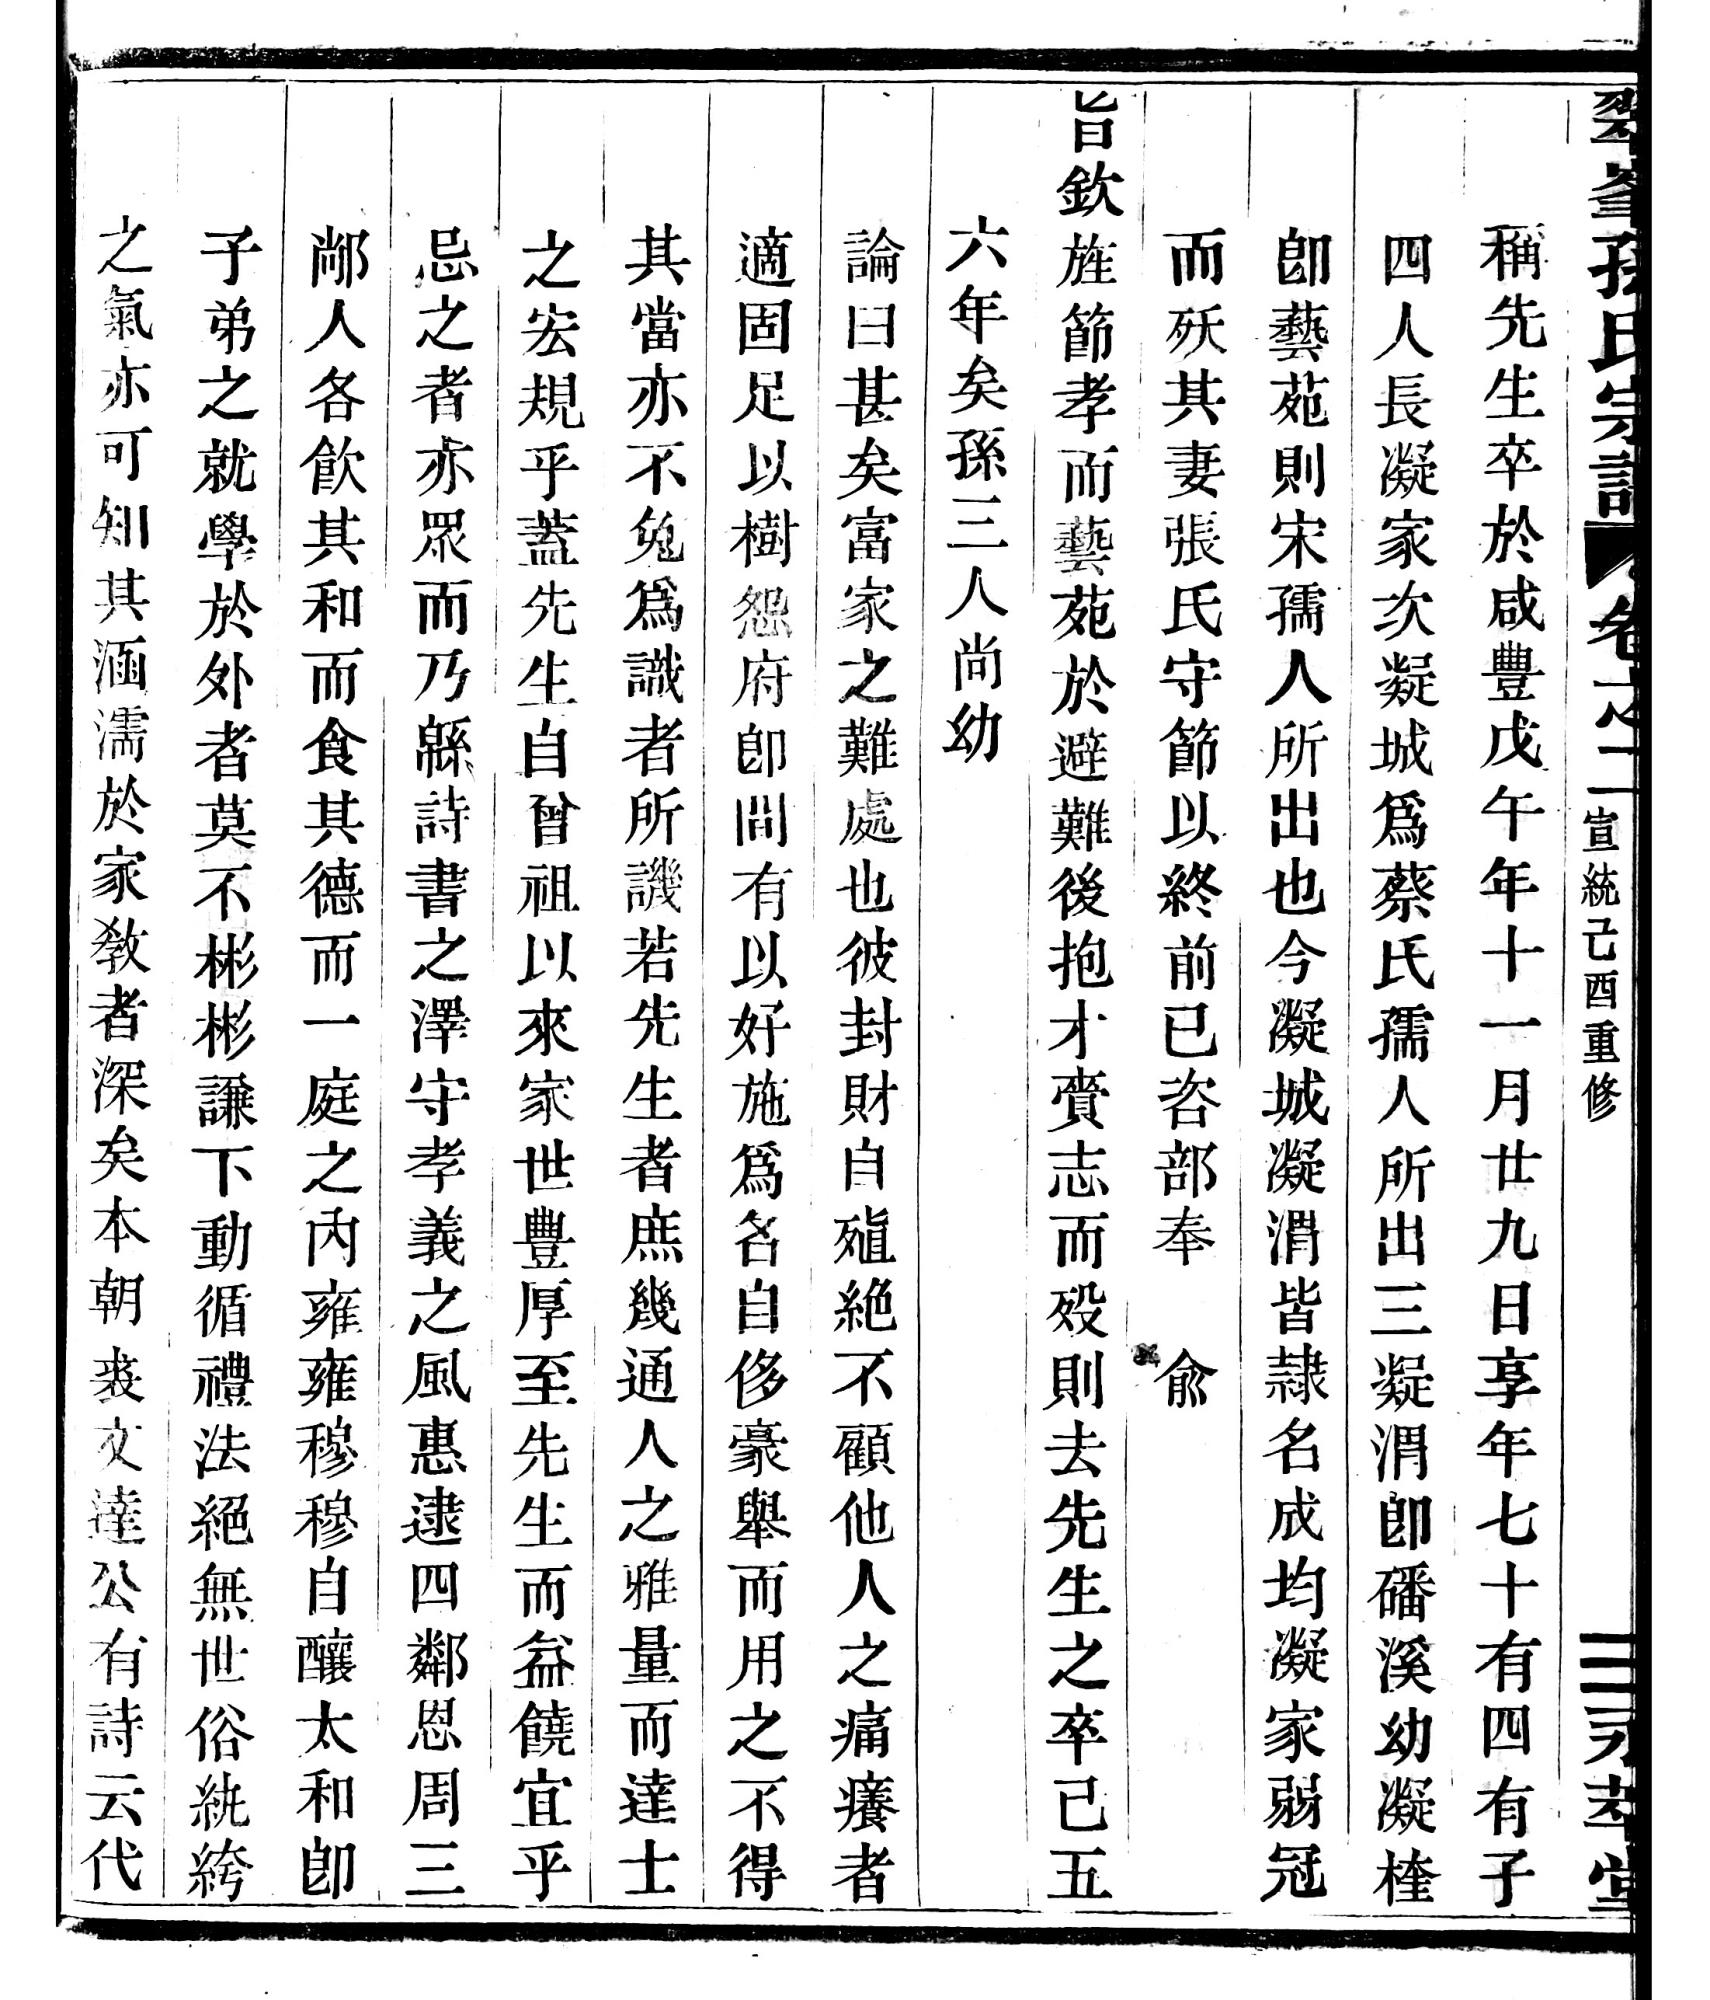 翠峯孫氏宗譜 卷之二 宣統己酉重修 三 永萃堂
稱先生卒於咸豐戊午年十一月廿九日享年七十有四有子
四人長凝家次凝城爲蔡氏孺人所出三凝渭卽磻溪幼凝㮮
卽藝苑則宋孺人所出也今凝城凝渭皆隷名成均凝家弱冠
而殀其妻張氏守節以終前已咨部奉 兪
旨欽旌節孝而藝苑於避難後抱才賷志而歿則去先生之卒已五
六年矣孫三人尚幼
論曰甚矣富家之難處也彼封財自殖絕不顧他人之痛癢者
適固足以樹怨府卽間有以好施爲名自侈豪舉而用之不得
其當亦不免爲識者所譏若先生者庶幾通人之雅量而達士
之宏規乎蓋先生自曾祖以來家世豐厚至先生而益饒宜乎
忌之者亦眾而乃緜詩書之澤守孝義之風惠逮四鄰恩周三
鄗人各飮其和而食其德而一庭之內雍雍穆穆自釀太和卽
子弟之就學於外者莫不彬彬謙下動循禮法絕無世俗紈絝
之氣亦可知其涵濡於家敎者深矣本朝裘文達公有詩云代